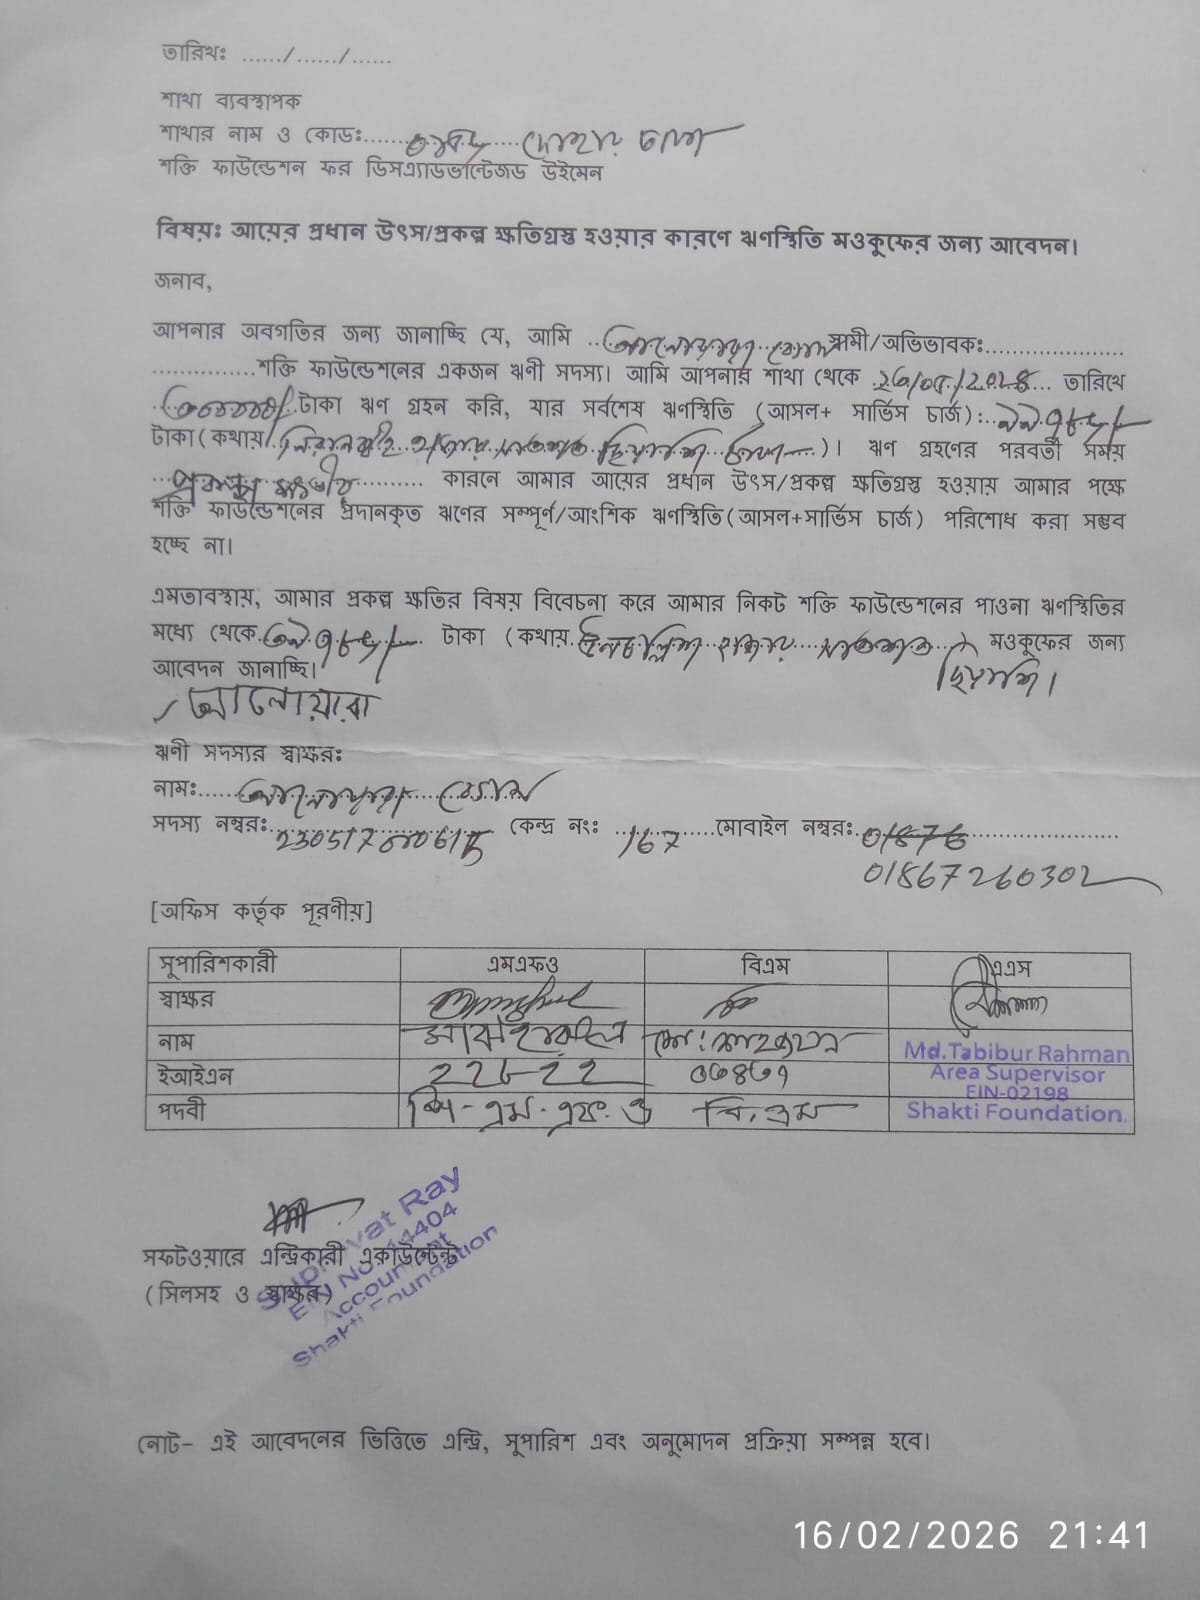 তারিখঃ ....../....../......
শাখা ব্যবস্থাপক
শাখার নাম ও কোডঃ...... দোহার ঢাকা
শক্তি ফাউন্ডেশন ফর ডিসএ্যাডভান্টেজড উইমেন
বিষয়ঃ আয়ের প্রধান উৎস/প্রকল্প ক্ষতিগ্রস্ত হওয়ার কারণে ঋণস্থিতি মওকুফের জন্য আবেদন।
জনাব,
আপনার অবগতির জন্য জানাচ্ছি যে, আমি ..আনোয়ারা..বেগম স্বামী/অভিভাবকঃ......................
................শক্তি ফাউন্ডেশনের একজন ঋণী সদস্য। আমি আপনার শাখা থেকে ... তারিখে
টাকা ঋণ গ্রহন করি, যার সর্বশেষ ঋণস্থিতি (আসল+ সার্ভিস চার্জ):..৯৯৭৮৬/-
টাকা(কথায় নিরানব্বই হাজার সাতশত ছিয়াশি টাকা...)। ঋণ গ্রহণের পরবর্তী সময়
...প্রকল্প ক্ষতি.......... কারনে আমার আয়ের প্রধান উৎস/প্রকল্প ক্ষতিগ্রস্ত হওয়ায় আমার পক্ষে
শক্তি ফাউন্ডেশনের প্রদানকৃত ঋণের সম্পূর্ণ/আংশিক ঋণস্থিতি(আসল+সার্ভিস চার্জ) পরিশোধ করা সম্ভব
হচ্ছে না।
এমতাবস্থায়, আমার প্রকল্প ক্ষতির বিষয় বিবেচনা করে আমার নিকট শক্তি ফাউন্ডেশনের পাওনা ঋণস্থিতির
মধ্যে থেকে ৩৯৭৮৬/- টাকা (কথায় ঊনচল্লিশ হাজার সাতশত ) মওকুফের জন্য
আবেদন জানাচ্ছি। ছিয়াশি।
আনোয়ারা
ঋণী সদস্যর স্বাক্ষরঃ
নামঃ..... আনোয়ারা বেগম
সদস্য নম্বরঃ কেন্দ্র নংঃ ..167.....মোবাইল নম্বরঃ.....................
01867260302
[অফিস কর্তৃক পূরণীয়]
সুপারিশকারী এমএফও বিএম এএস
স্বাক্ষর
নাম মোঃ শাহজাহান Md.Tabibur Rahman
ইআইএন 22622 Area Supervisor
EIN-02198
পদবী সি-এম.এফ.ও বি.এম Shakti Foundation
সফটওয়ারে এন্ট্রিকারী একাউন্টেন্ট
(সিলসহ ও স্বাক্ষর)
Ray
Accountant
Shakti Foundation
নোট- এই আবেদনের ভিত্তিতে এন্ট্রি, সুপারিশ এবং অনুমোদন প্রক্রিয়া সম্পন্ন হবে।
16/02/2026 21:41